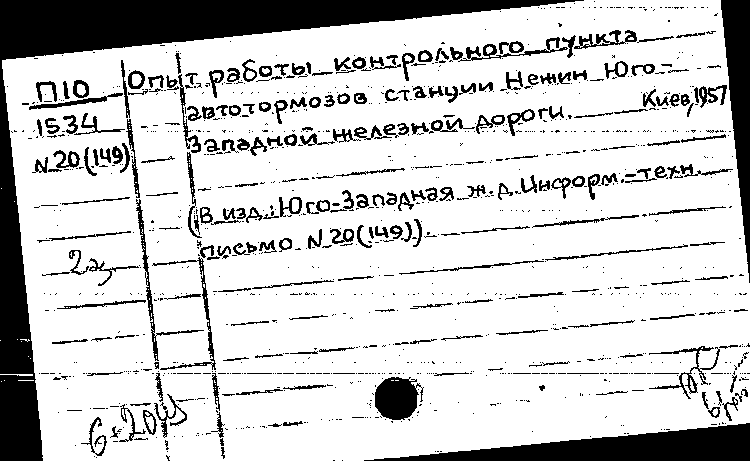 П10
1534
N 20(149)
Опыт работы контрольного пункта
автотормозов станции Нежин Юго-
Западной железной дороги. Киев, 1957
(В изд.: Юго-Западная ж.д. Информ.-техн.
письмо N 20(149)).
2